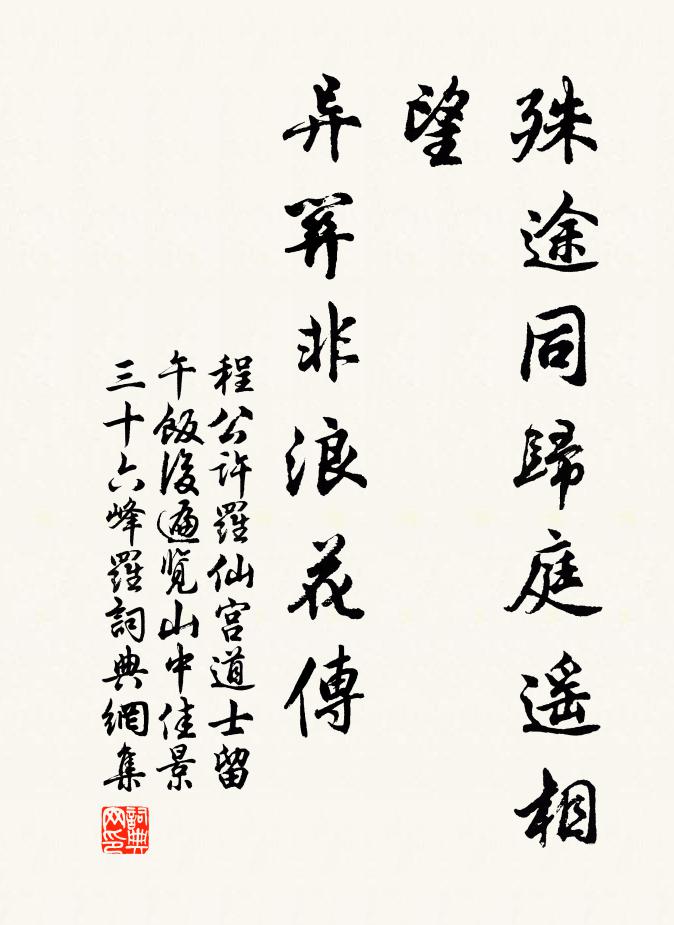 殊途同歸庭遥相
望
异算非浪花傳
程公許羅仙宫道士留
午飯後遍览山中佳景
三十六峰羅詞典網集
詞典
网印